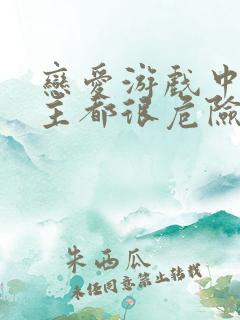 戀愛游戲中
主都很危險
朱西瓜
未任同意禁止转载